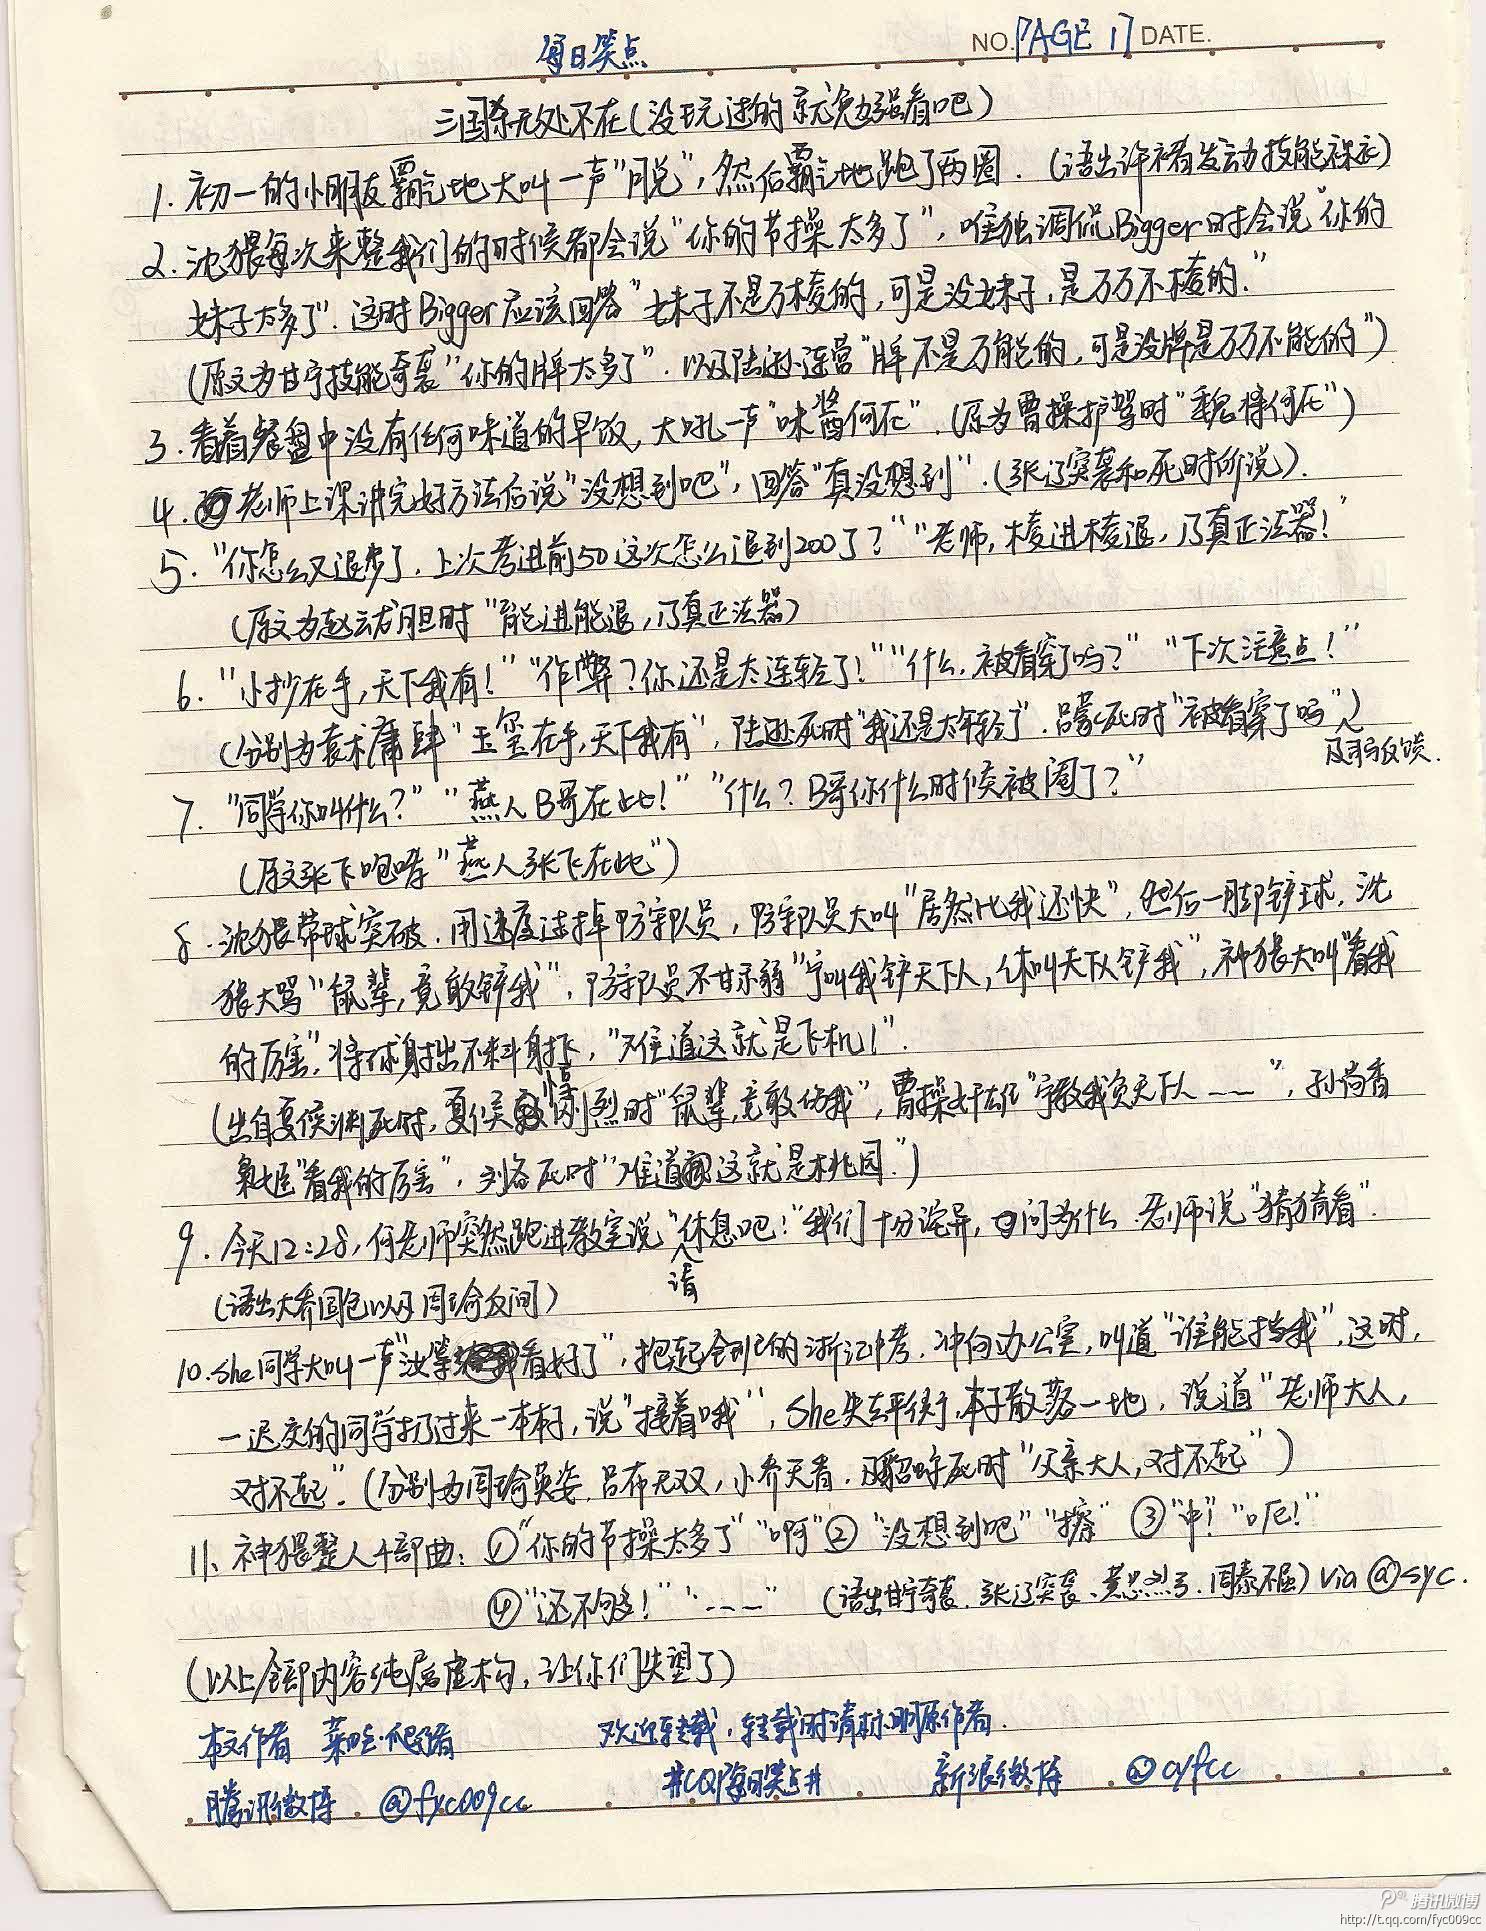 每日笑点
NO. PAGE 17 DATE.
三国杀无处不在(没玩过的就勉强看吧)
1. 初一的小朋友霸气地大叫一声"脱",然后霸气地跑了两圈. (语出许褚发动技能裸衣)
2. 沈猥每次来整我们的时候都会说"你的节操太多了", 唯独调侃Bigger时会说"你的
妹子太多了". 这时Bigger应该回答"妹子不是万棱的,可是没妹子,是万万不棱的."
(原文为甘宁技能奇袭"你的牌太多了". 以及陆逊连营"牌不是万能的,可是没牌是万万不能的")
3. 看着餐盘中没有任何味道的早饭,大吼一声"味酱何在". (原为曹操护驾时"魏将何在")
4. 老师上课讲完好方法后说"没想到吧", 回答"真没想到". (张辽突袭和死时所说).
5. "你怎么又退步了. 上次考进前50这次怎么退到200了?" "老师, 棱进棱退, 乃真正法器!"
(原文为赵云龙胆时"能进能退,乃真正法器)
6. "小抄在手,天下我有!" "作弊?你还是太连轻了!" "什么,被看穿了吗?" "下次注意点!"
(分别为袁术庸肆"玉玺在手,天下我有", 陆逊死时"我还是太年轻了". 吕蒙死时"被看穿了吗")
及司马反馈.
7. "同学你叫什么?" "燕人B哥在此!" "什么?B哥你什么时候被阉了?"
(原文张飞咆哮"燕人张飞在此")
8. 沈猥带球突破. 用速度过掉防守队员, 防守队员大叫"居然比我还快", 然后一脚铲球, 沈
猥大骂"鼠辈,竟敢铲我", 防守队员不甘示弱"宁叫我铲天下人,休叫天下人铲我", 神猥大叫"看我
的厉害", 将球射出不料射飞, "难道这就是飞机!".
(出自夏侯渊死时, 夏侯惇刚烈时"鼠辈,竟敢伤我", 曹操奸雄"宁教我负天下人……", 孙尚香
枭姬"看我的厉害", 刘备死时"难道这就是桃园.")
9. 今天12:28, 何老师突然跑进教室说"请休息吧!"我们十分诧异, 问为什么. 老师说"猜猜看".
(语出大乔国色以及周瑜反间)
10. She同学大叫一声"汝等看好了", 抱起全班的浙江中考. 冲向办公室, 叫道"谁能挡我", 这时,
一迟交的同学扔过来一本本子, 说"接着哦", She失去平衡, 本子散落一地, 说道"老师大人,
对不起". (分别为周瑜英姿, 吕布无双, 小乔天香. 及貂蝉死时"父亲大人, 对不起")
11. 神猥整人4部曲: ①"你的节操太多了" "啊" ② "没想到吧" "擦" ③"中!" "呃!"
④"还不够!" "……" (语出甘宁奇袭. 张辽突袭、黄忠烈弓. 周泰不屈) via @syc.
(以上全部内容纯属虚构, 让你们失望了)
本文作者 欢迎转载, 转载时请标明原作者.
腾讯微博 @fyc009cc #CQF每日笑点# 新浪微博 @cyfcc
腾讯微博
http://t.qq.com/fyc009cc